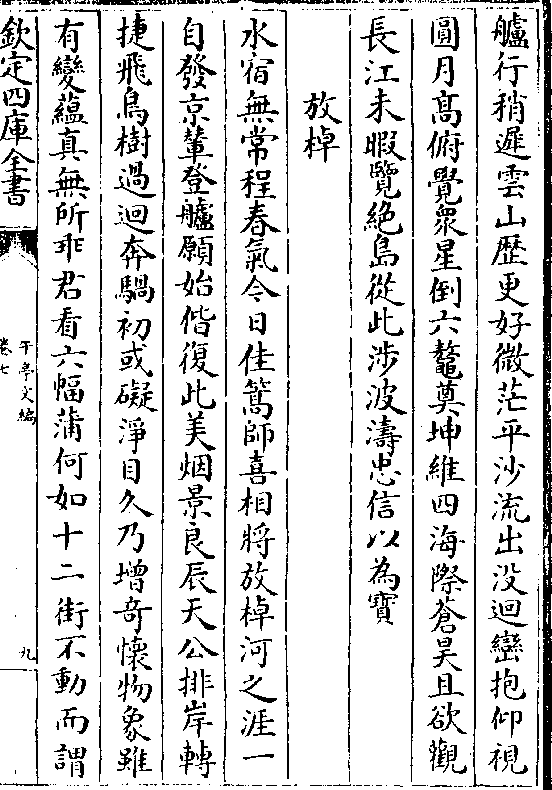 艫行稍遲雲山歴更好微茫平沙流出没迴巒抱仰視
圓月髙俯覺衆星倒六鼇奠坤維四海際蒼昊且欲觀
長江未暇覽絶島從此涉波濤忠信以為寶
放棹
水宿無常程春氣今日佳篙師喜相將放棹河之涯一
自發京輦登艫願始偕復此美烟景良辰天公排岸轉
捷飛鳥樹過迴奔騧初或礙淨目久乃增竒懐物象雖
有變藴真無所乖君看六幅蒲何如十二街不動而謂
欽定四庫全書
卷七
九